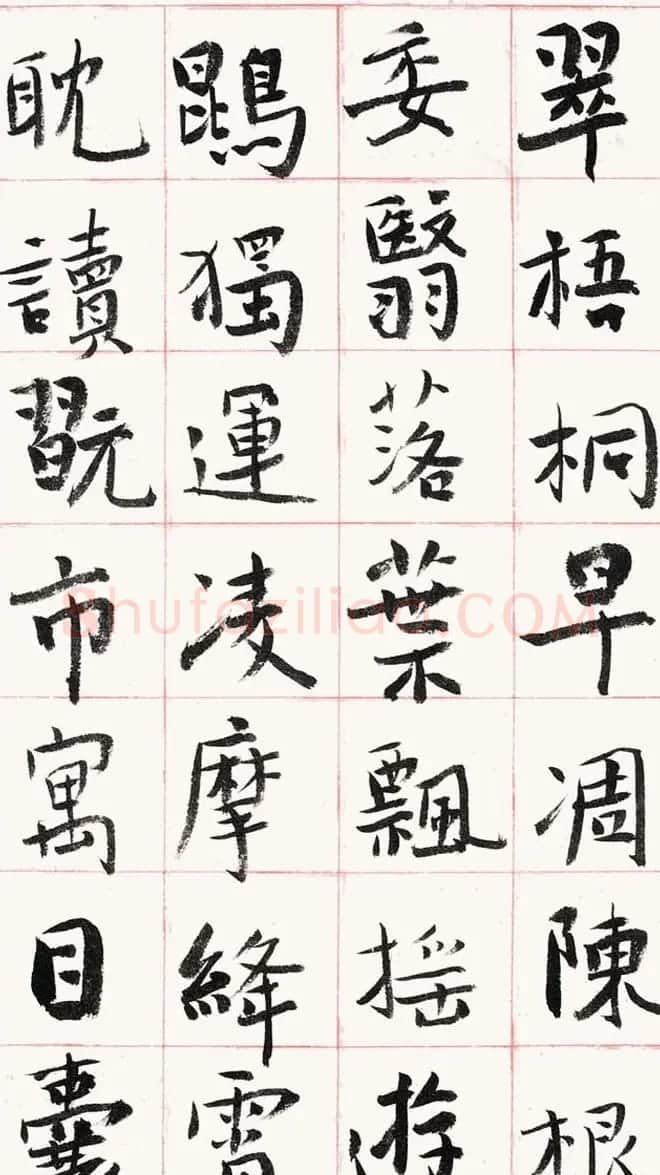 翠梧桐早凋陳根
委翳落葉飄搖遊
鵾獨運凌摩絳霄
耽讀翫市寓目囊
Shufaziliao.COM